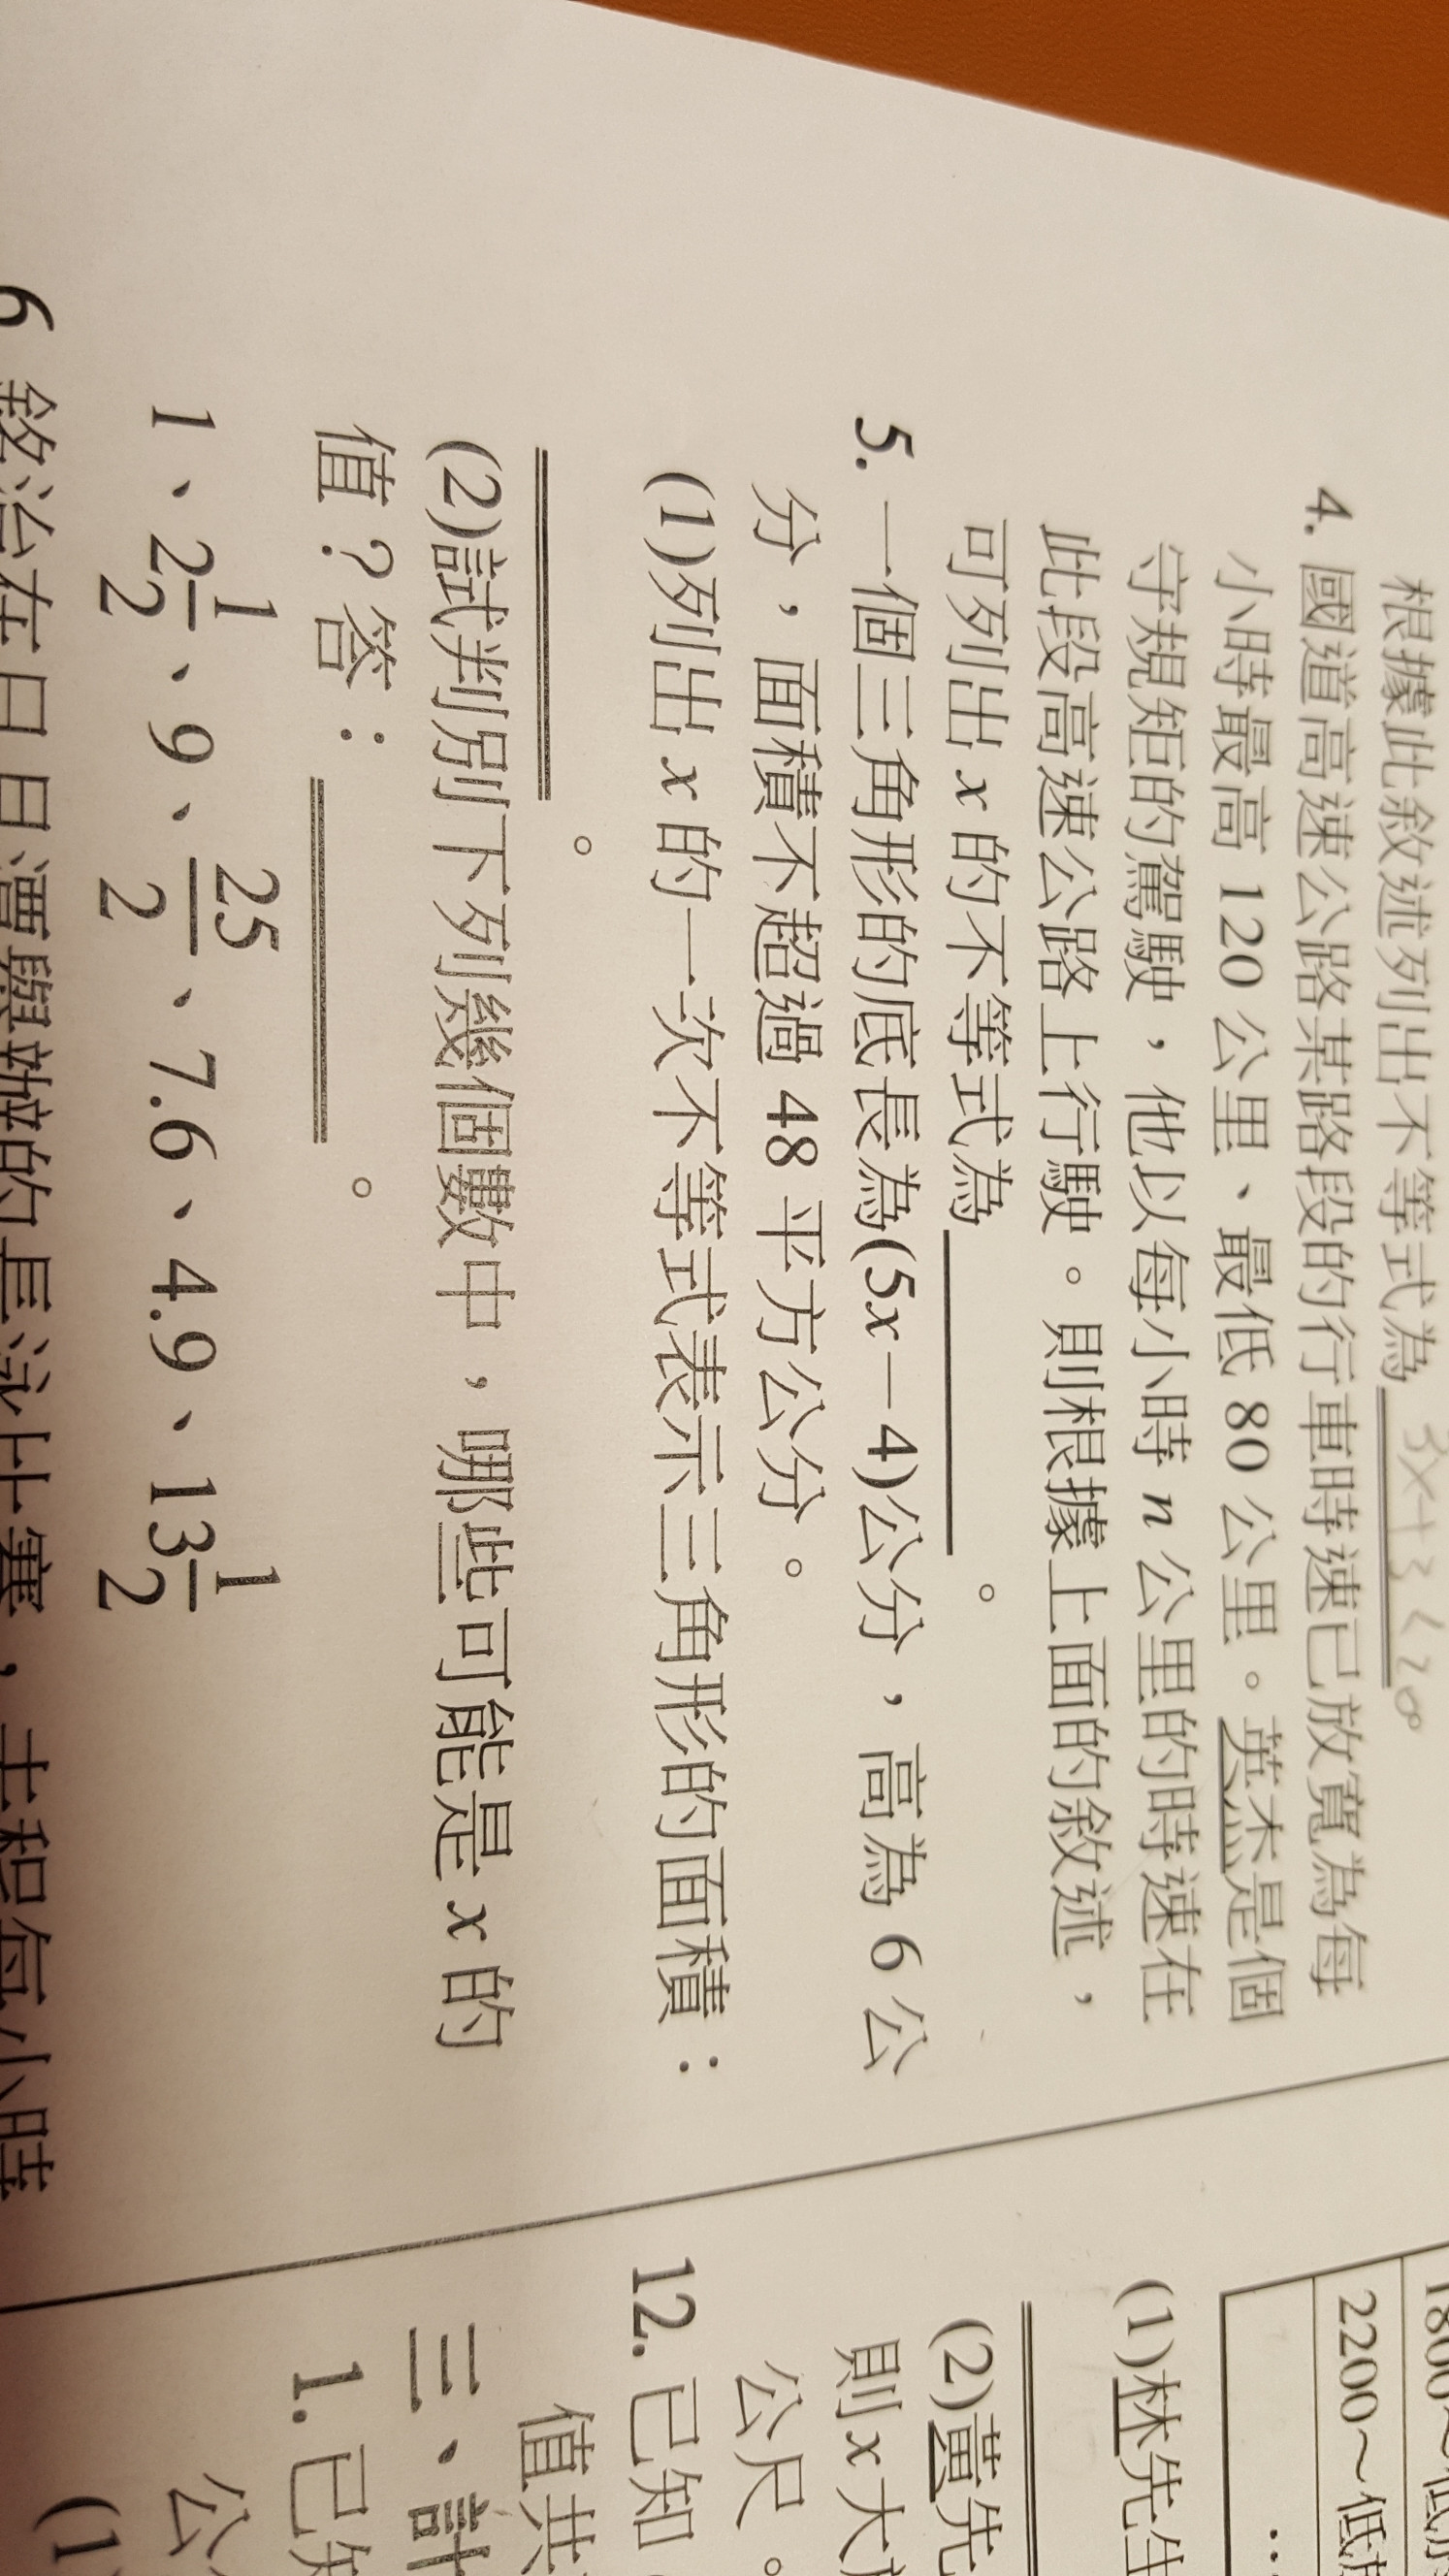 根據此敘述列出不等式為 3x+3<20。
4. 國道高速公路某路段的行車時速已放寬為每
小時最高 120 公里、最低 80 公里。英杰是個
守規矩的駕駛，他以每小時 n 公里的時速在
此段高速公路上行駛。則根據上面的敘述，
可列出 x 的不等式為＿＿＿＿。
5. 一個三角形的底長為(5x－4)公分，高為 6 公
分，面積不超過 48 平方公分。
(1)列出 x 的一次不等式表示三角形的面積：
＿＿＿＿。
(2)試判別下列幾個數中，哪些可能是 x 的
值？答：＿＿＿＿。
1、2 1/2、9、25/2、7.6、4.9、13 1/2
6 銘洽在日月潭舉辦的長泳比賽，去程每小時
2200～低
…
(1)林先生
(2)黃先
則 x 大
公尺。
12. 已知
值共
三、計
1. 已知
公
(1